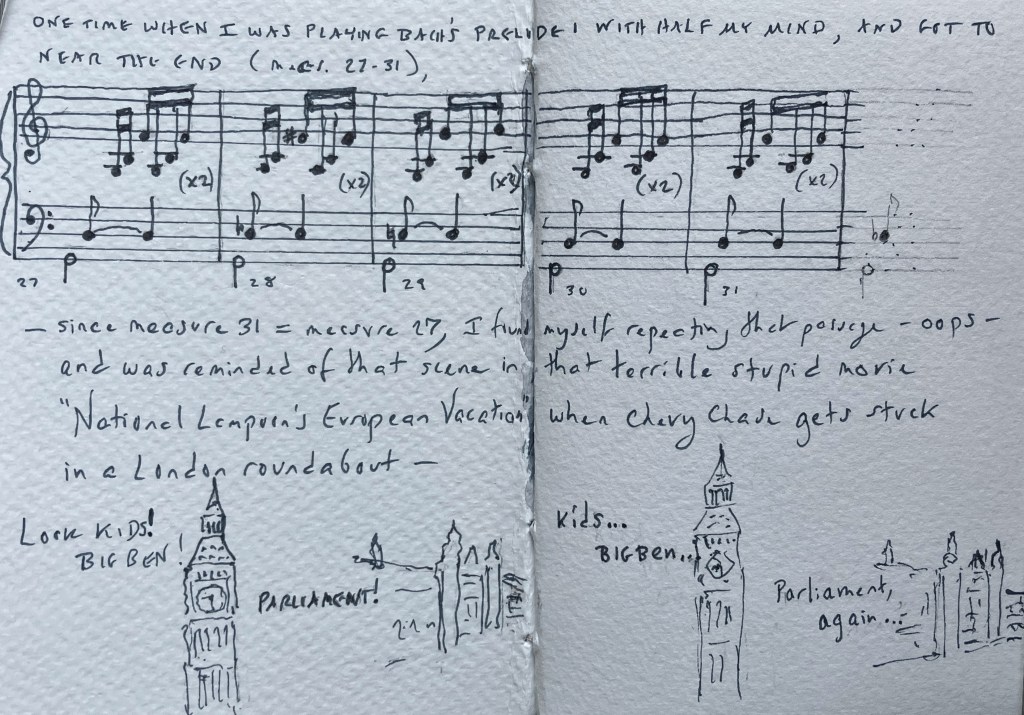 ONE TIME WHEN I WAS PLAYING BACH'S PRELUDE 1 WITH HALF MY MIND, AND GOT TO
NEAR THE END (mes. 27-31),
(x2) (x2) (x2) (x2) (x2)
27 28 29 30 31
— since measure 31 = measure 27, I find myself repeating that passage – oops –
and was reminded of that scene in that terrible stupid movie
"National Lampoon's European Vacation" when Chevy Chase gets stuck
in a London roundabout —
LOOK KIDS!
BIG BEN!
PARLIAMENT!
Kids...
BIG Ben...
Parliament,
again...